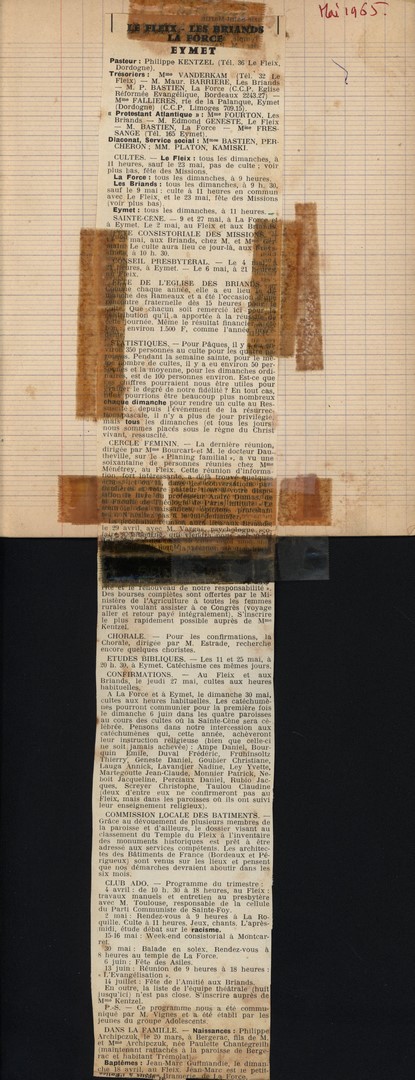 Mai 1965.
LE FLEIX - LES BRIANDS
LA FORCE
EYMET
Pasteur : Philippe KENTZEL (Tél. 36 Le Fleix,
Dordogne).
Trésoriers : Mme VANDERKAM (Tél. 32 Le
Fleix). — M. Maur. BARRIERE, Les Briands
— M. P. BASTIEN, La Force (C.C.P. Eglise
Réformée Evangélique, Bordeaux 2243.27) —
Mme FALLIERES, rie de la Palanque, Eymet
(Dordogne) (C.C.P. Limoges 709.15).
« Protestant Atlantique » : Mme FOURTON, Les
Briands — M. Edmond GENESTE, Le Fleix
— M. BASTIEN, La Force — Mme FRES-
SANGE (Tél. 165 Eymet).
Diaconat, Service social : Mmes BASTIEN, PER-
CHERON ; MM. PLATON, KAMISKI.
CULTES. — Le Fleix : tous les dimanches, à
11 heures, sauf le 23 mai, pas de culte : voir
plus bas, fête des Missions.
La Force : tous les dimanches, à 9 heures.
Les Briands : tous les dimanches, à 9 h. 30,
sauf le 9 mai : culte à 11 heures en commun
avec Le Fleix, et le 23 mai, fête des Missions
(voir plus bas).
Eymet : tous les dimanches, à 11 heures.
SAINTE-CENE. — 9 et 27 mai, à La Force et
à Eymet. Le 2 mai, au Fleix et aux
CONSISTORIALE DES MISSIONS
mai, aux Briands, chez M. et
Le culte aura lieu ce jour-là, aux
à 10 h. 30.
CONSEIL PRESBYTERAL. — Le 4
à Eymet. — Le 6 mai, à 21

DE L'EGLISE DES BRIANDS
chaque année, elle a eu lieu
des Rameaux et a été l'occasion
fraternelle dès 15 heures
Que chacun soit remercié ici
qu'il a apportée à la
journée. Même le résultat
environ 1.500 F, comme l'année

STATISTIQUES. — Pour Pâques, il y
350 personnes au culte pour les
Pendant la semaine sainte, pour le
nombre de cultes, il y a eu environ 50
et la moyenne, pour les dimanches ordi-
est de 100 personnes environ. Est-ce que
chiffres pourraient nous être utiles pour
le degré de notre fidélité ? En tout cas,
pourrions être beaucoup plus nombreux
chaque dimanche pour rendre un culte au Res-
suscité ; depuis l'événement de la résurrec-
pascale, il n'y a plus de jour privilégié
mais tous les dimanches (et tous les jours)
nous sommes placés sous le règne du Christ
vivant, ressuscité.
CERCLE FEMININ. — La dernière réunion,
dirigée par Mme Bourcart et M. le docteur Dau-
theville, sur le « Planing familial », a vu une
soixantaine de personnes réunies chez Mme
Ménétrey, au Fleix. Cette réunion d'informa-
fort intéressante, a déjà trouvé
le 29 avril, avec M. Vargas,
et le renouveau de notre responsabilité ».
Des bourses complètes sont offertes par le Mi-
nistère de l'Agriculture à toutes les femmes
rurales voulant assister à ce Congrès (voyage
aller et retour payé intégralement). S'inscrire
le plus rapidement possible auprès de Mme
Kentzel.
CHORALE. — Pour les confirmations, la
Chorale, dirigée par M. Estrade, recherche
encore quelques choristes.
ETUDES BIBLIQUES. — Les 11 et 25 mai, à
20 h. 30, à Eymet. Catéchisme ces mêmes jours.
CONFIRMATIONS. — Au Fleix et aux
Briands, le jeudi 27 mai, cultes aux heures
habituelles.
A La Force et à Eymet, le dimanche 30 mai,
cultes aux heures habituelles. Les catéchumè-
nes pourront communier pour la première fois
le dimanche 6 juin dans les quatre paroisses
au cours des cultes où la Sainte-Cène sera cé-
lébrée. Pensons dans notre intercession aux
catéchumènes qui, cette année, achèveront
leur instruction religieuse (bien que celle-ci
ne soit jamais achevée) : Ampe Daniel, Bour-
quin Emile, Duval Frédéric, Fruhinsoltz
Thierry, Geneste Daniel, Goubier Christiane,
Lauga Annick, Lavandier Nadine, Ley Yvette,
Martegoutte Jean-Claude, Monnier Patrick, Ne-
boit Jacqueline, Perciaux Daniel, Rubio Jac-
ques, Screyer Christophe, Taulou Claudine
(deux d'entre eux ne confirmeront pas au
Fleix, mais dans les paroisses où ils ont suivi
leur enseignement religieux).
COMMISSION LOCALE DES BATIMENTS. —
Grâce au dévouement de plusieurs membres de
la paroisse et d'ailleurs, le dossier visant au
classement du Temple du Fleix à l'inventaire
des monuments historiques est prêt à être
adressé aux services compétents. Les architec-
tes des Bâtiments de France (Bordeaux et Pé-
rigueux) sont venus sur les lieux et pensent
que nos démarches devraient aboutir dans les
six mois.
CLUB ADO. — Programme du trimestre :
4 avril : de 10 h. 30 à 18 heures, au Fleix :
travaux manuels et entretien au presbytère
avec M. Toulouse, responsable de la cellule
du Parti Communiste de Sainte-Foy.
2 mai : Rendez-vous à 9 heures à La Ro-
quille. Culte à 11 heures. Jeux, chants. L'après-
midi, étude débat sur le racisme.
15-16 mai : Week-end consistorial à Montcar-
ret.
30 mai : Balade en solex. Rendez-vous à
8 heures au temple de La Force.
6 juin : Fête des Asiles.
13 juin : Réunion de 9 heures à 18 heures :
« L'Evangélisation ».
14 juillet : Fête de l'Amitié aux Briands.
En outre, la liste de l'équipe théâtrale (huit
jusqu'ici) n'est pas close. S'inscrire auprès de
Mme Kentzel.
P.-S. — Ce programme nous a été commu-
niqué par M. Vignes et a été établi par les
jeunes du groupe Adolescente.
DANS LA FAMILLE. — Naissances : Philippe
Archipczuk, le 20 mars, à Bergerac, fils de M.
et Mme Archipczuk, née Paulette Chantegreil
(maintenant rattachés à la paroisse de Berge-
rac et habitant Trémolat).
Baptêmes : Jean-Marc Guffmandie, le diman-
che 18 avril, au Fleix. Jean-Marc est le petit-
de La Force.